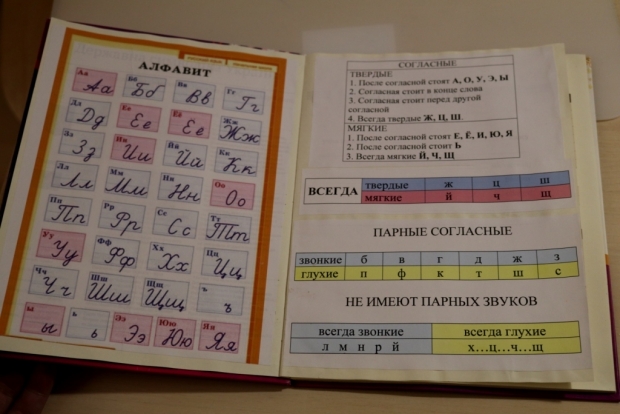 АЛФАВИТ
Аа Бб Вв Гг
Аа Бб Вв Гг
Дд Ее Ёё Жж
Дд Ее Ёё Жж
Зз Ии Йй Кк
Зз Ии Йй Кк
Лл Мм Нн Оо
Лл Мм Нн Оо
Пп Рр Сс Тт
Пп Рр Сс Тт
Уу Фф Хх Цц
Уу Фф Хх Цц
Чч Шш Щщ ъ
Чч Шш Щщ ъ
ы ь Ээ Юю Яя
ы ь Ээ Юю Яя
СОГЛАСНЫЕ
ТВЕРДЫЕ
1. После согласной стоят А, О, У, Э, Ы
2. Согласная стоит в конце слова
3. Согласная стоит перед другой
согласной
4. Всегда твердые Ж, Ц, Ш.
МЯГКИЕ
1. После согласной стоят Е, Ё, И, Ю, Я
2. После согласной стоит Ь
3. Всегда мягкие Й, Ч, Щ
ВСЕГДА
твердые ж ц ш
мягкие й ч щ
ПАРНЫЕ СОГЛАСНЫЕ
звонкие б в г д ж з
глухие п ф к т ш с
НЕ ИМЕЮТ ПАРНЫХ ЗВУКОВ
всегда звонкие всегда глухие
л м н р й х…ц…ч…щ